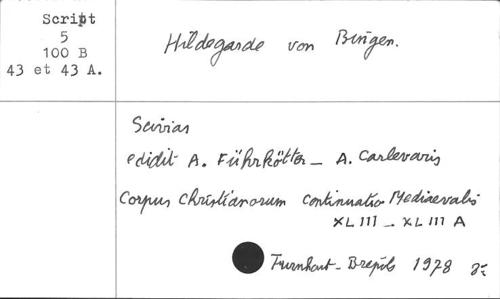 Script
5
100 B
43 et 43 A.
Hildegarde von Bingen.
Scivias
edidit A. Führkötter - A. Carlevaris
Corpus Christianorum Continuatio Mediaevalis
XLIII - XLIII A
Turnhout - Brepols 1978